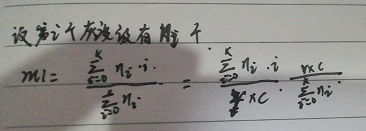 设第i个灰度级有 ni 个.
m1 = \frac{\sum_{i=0}^{k} n_i \cdot i}{\sum_{i=0}^{k} n_i} = \frac{\sum_{i=0}^{k} n_i \cdot i}{r \times c} \cdot \frac{r \times c}{\sum_{i=0}^{k} n_i}